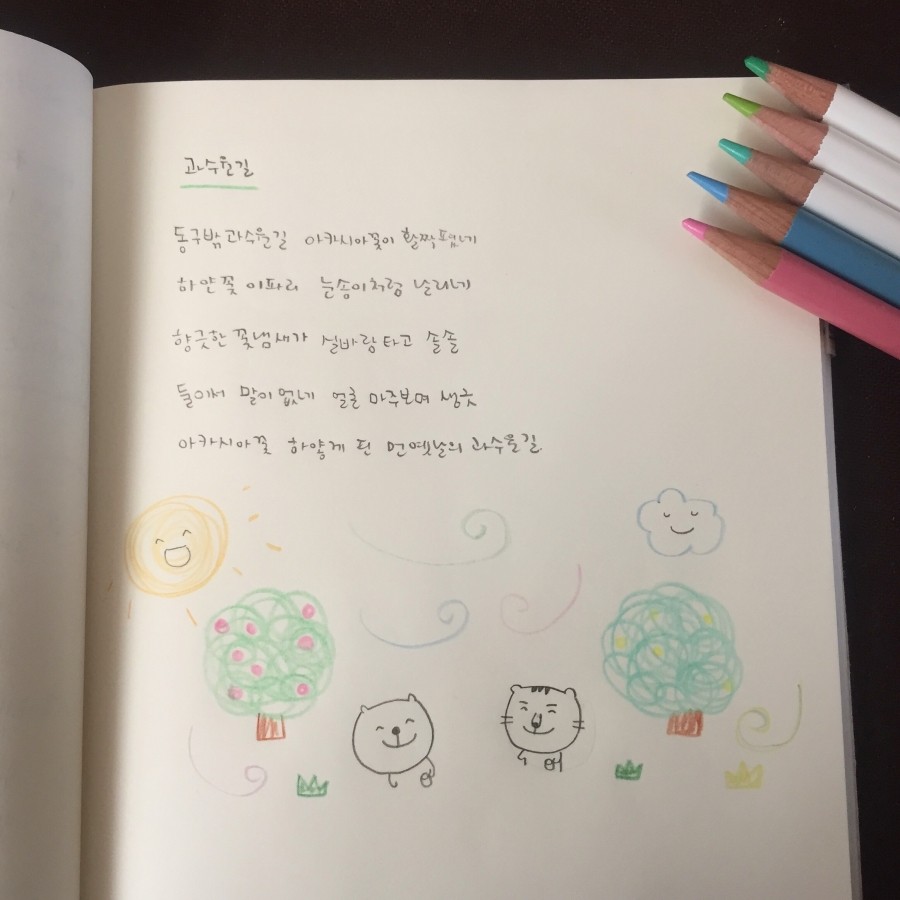 과수원길
동구밖 과수원길 아카시아꽃이 활짝 폈네
하얀 꽃 이파리 눈송이처럼 날리네
향긋한 꽃냄새가 실바람 타고 솔솔
둘이서 말이 없네 얼굴 마주보며 생긋
아카시아꽃 하얗게 핀 먼 옛날의 과수원길.